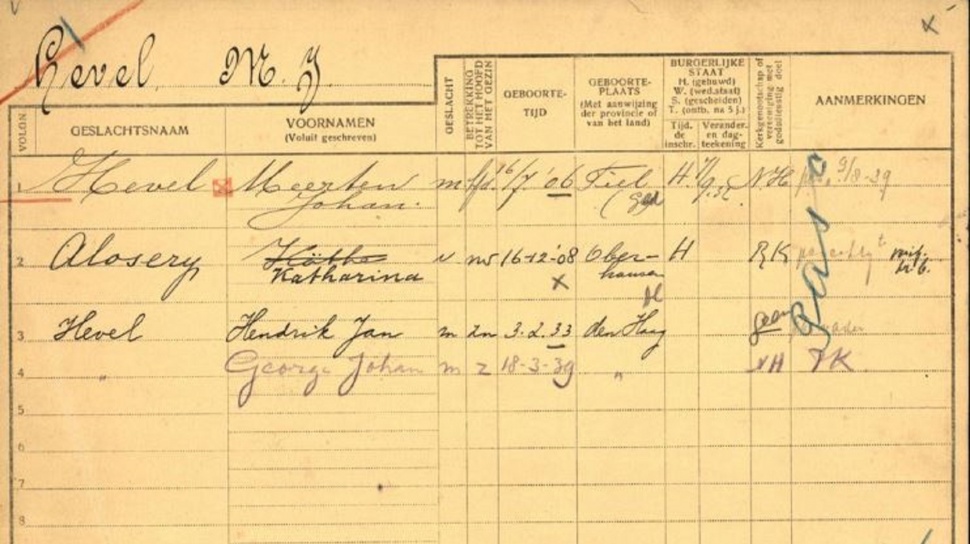 Hevel, M. J.
VOLGN.
GESLACHTSNAAM
VOORNAMEN
(Voluit geschreven)
GESLACHT
BETREKKING
TOT HET HOOFD
VAN HET GEZIN
GEBOORTE-
TIJD
GEBOORTE-
PLAATS
(Met aanwijzing
der provincie of
van het land)
BURGERLIJKE
STAAT
H. (gehuwd)
W. (wed.staat)
S. (gescheiden)
T. (ontb. na 5 j.)
Tijd.
de
inschr.
Verander.
en dag-
teekening
Kerkgenootschap of
vereeniging met
godsdienstig doel
AANMERKINGEN
1 Hevel Meerten m 16/7 '06 Tiel H N H 9/8-39
Johan.
2 Alosery Käthe v 16-12-'08 Ober- H R K
Katharina x hausen
3 Hevel Hendrik Jan m zn 3.2.33 den Haag geen
4 " George Johan m z 18-3-39 " NH
5
6
7
8